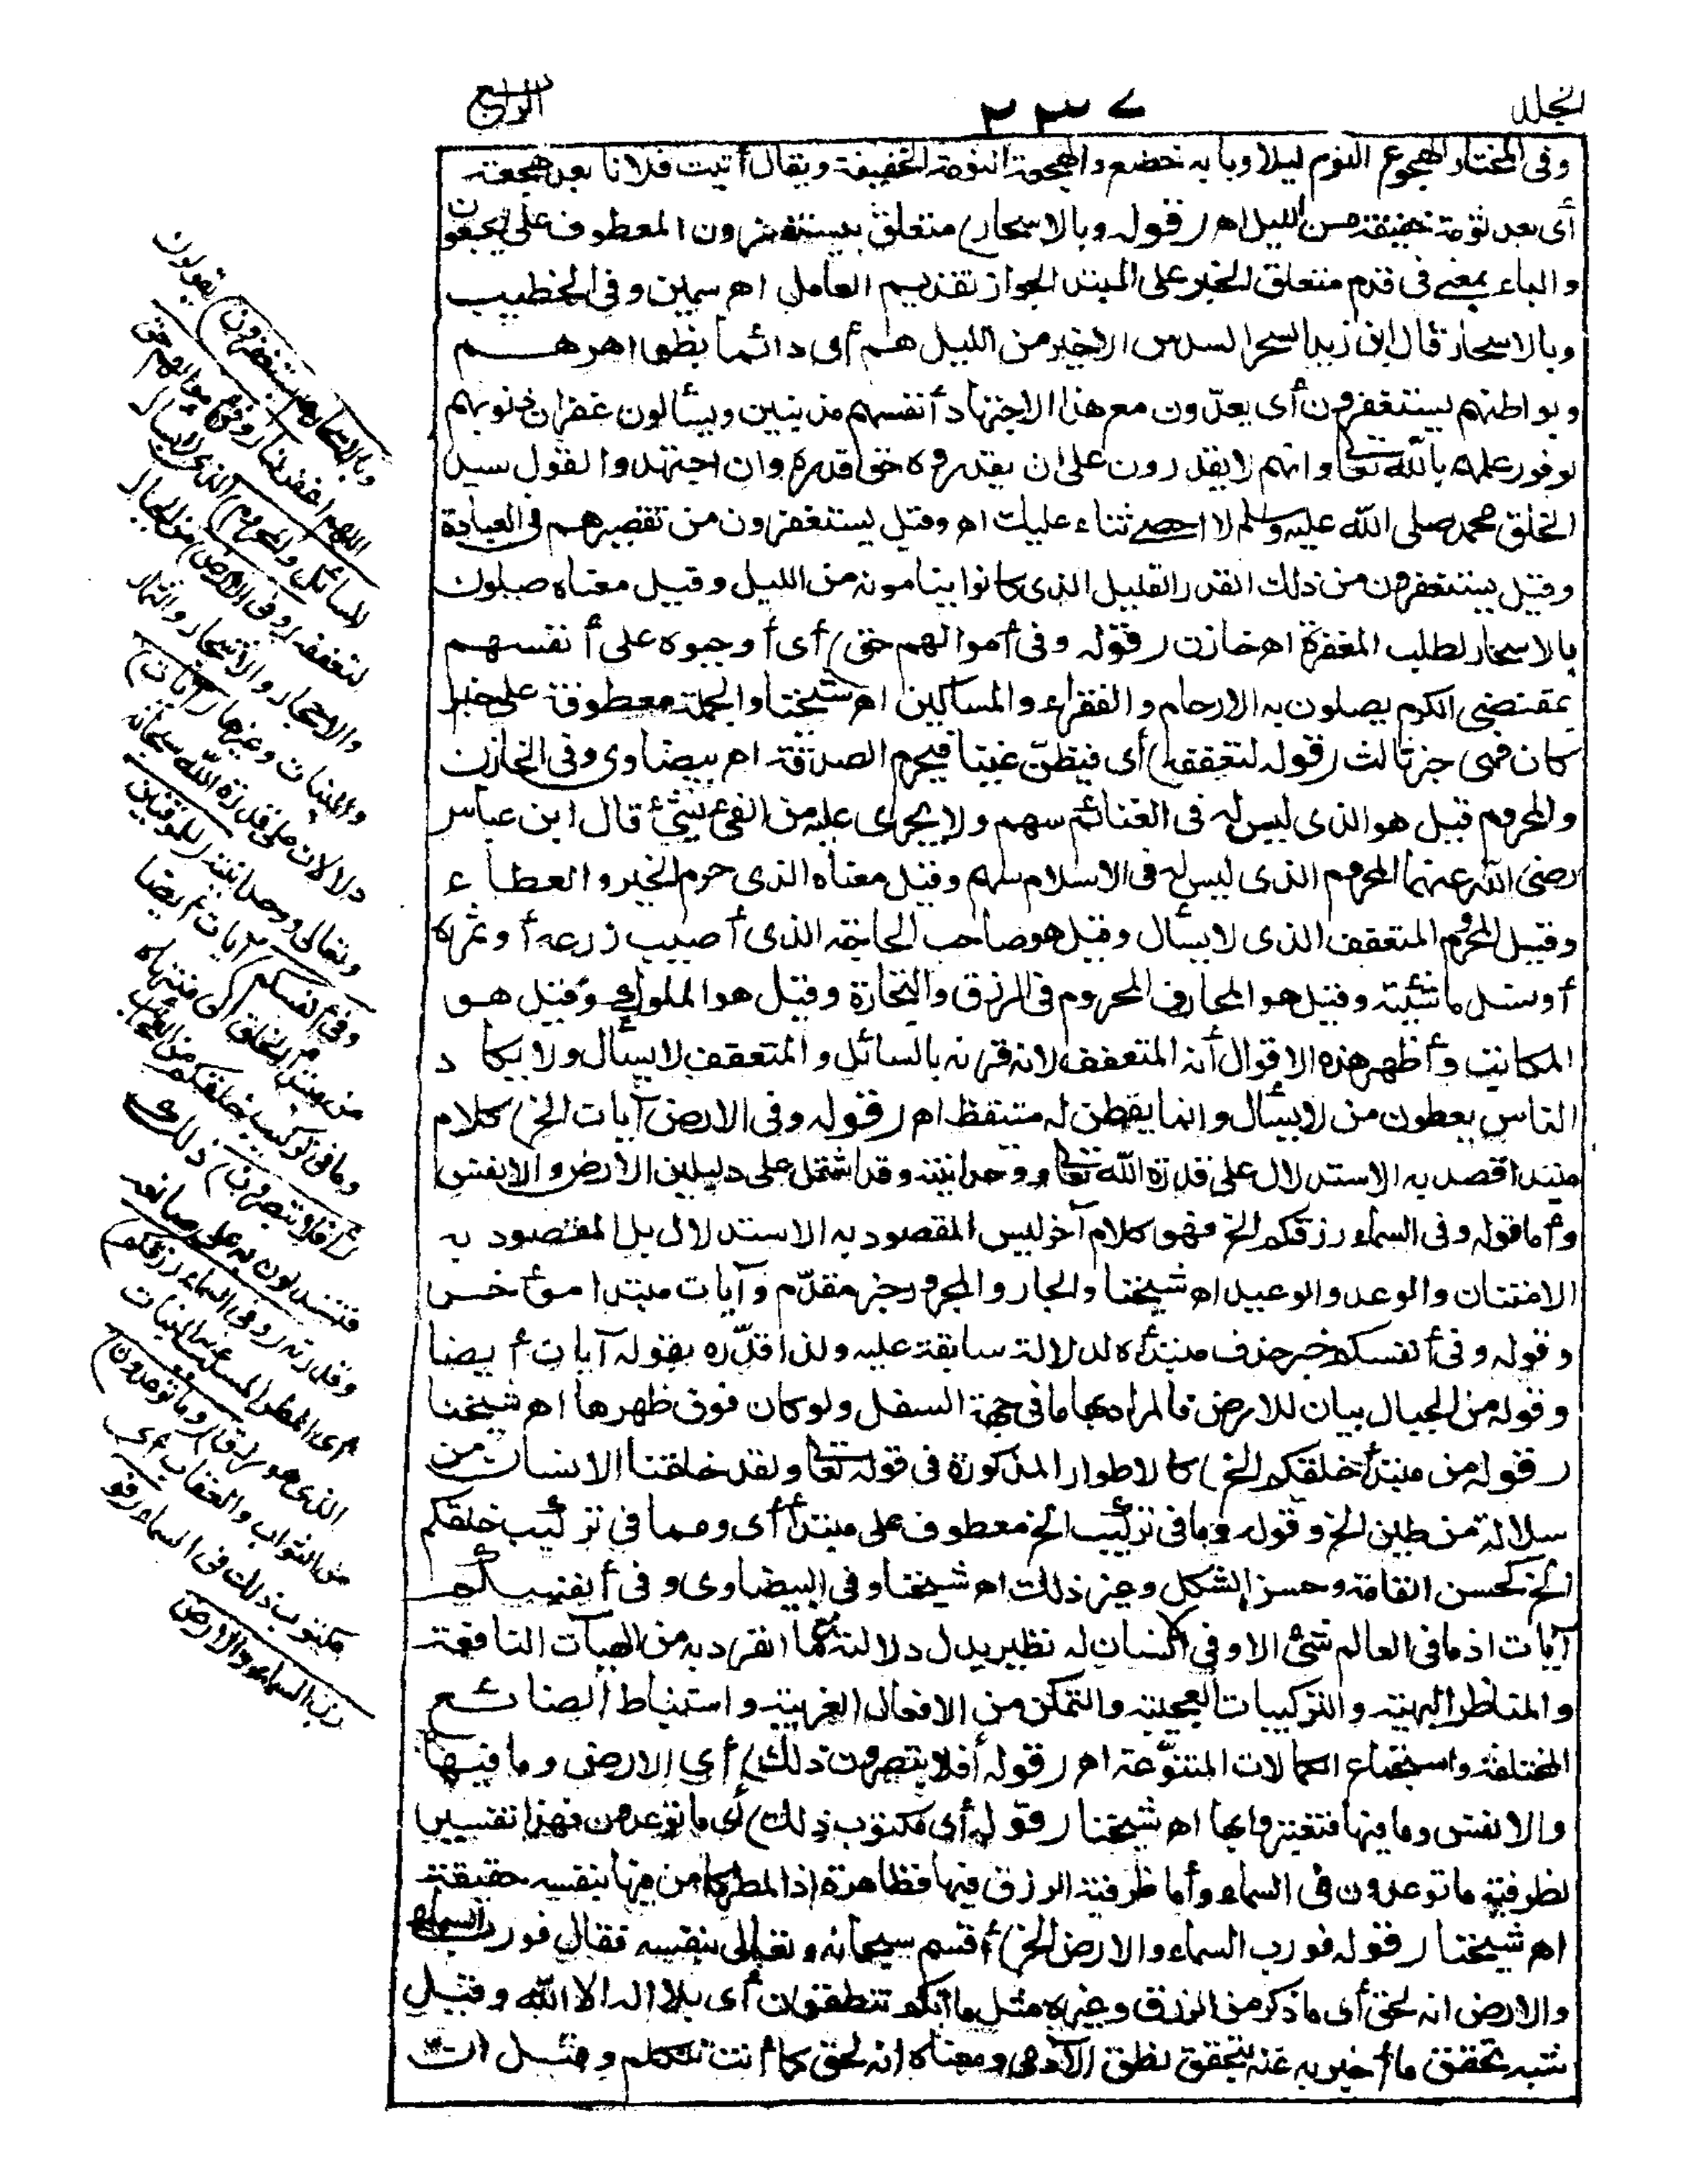 المجلد
٢٣٧
الرابع
وفى المختار الهجوع النوم ليلا وبابه خضع والهجعة النومة الخفيفة ويقال أتيت فلانا بعد هجعة
أى بعد نومة خفيفة من الليل اهر (قوله وبالاسحار) متعلق بيستغفرون المعطوف على يهجعون
والباء بمعنى فى قدم متعلق الخبر على المبتدا لجواز تقديم العامل اهر سمين وفى الخطيب
وبالاسحار قال ابن زيد السحر السدس الاخير من الليل هم أى دائما بظواهرهم
وبواطنهم يستغفرون أى يعدّون مع هذا الاجتهاد أنفسهم مذنبين ويسألون غفران ذنوبهم
لوفور علمهم بالله تعالى وانهم لا يقدرون على ان يقدروه حق قدره وان اجتهدوا لقول سيد
الخلق محمد صلى الله عليه وسلم لا احصى ثناء عليك اهر وقيل يستغفرون من تقصيرهم فى العبادة
وقيل يستغفرون من ذلك القدر القليل الذى كانوا ينامونه من الليل وقيل معناه يصلون
بالاسحار لطلب المغفرة اهر خازن (قوله وفى أموالهم حق) أى أوجبوه على أنفسهم
بمقتضى الكرم يصلون به الارحام والفقراء والمساكين اهر شيخنا والجملة معطوفة على خبر
كان فهى خبر ثالث (قوله لتعففه) أى فيظنّ غنيا فيحرم الصدقة اهر بيضاوى وفى الخازن
والمحروم قيل هو الذى ليس له فى الغنائم سهم ولا يجرى عليه من الفئ شئ قال ابن عباس
رضى الله عنهما المحروم الذى ليس له فى الاسلام سهم وقيل معناه الذى حرم الخير والعطاء
وقيل المحروم المتعفف الذى لا يسأل وقيل هو صاحب الجائحة الذى أصيب زرعه أو ثمره
أو نسل ماشيته وقيل هو المحارف المحروم فى الرزق والتجارة وقيل هو المملوك وقيل هو
المكاتب وأظهر هذه الاقوال أنه المتعفف لانه قرنه بالسائل والمتعفف لا يسأل ولا يكاد
الناس يعطون من لا يسأل وانما يفطن له متيقظ اهر (قوله وفى الارض آيات الخ) كلام
مبتدا قصد به الاستدلال على قدرة الله تعالى ووحدانيته وقد اشتمل على دليلين الارض والانفس
وأما قوله وفى السماء رزقكم الخ فهو كلام آخر ليس المقصود به الاستدلال بل المقصود به
الامتنان والوعد والوعيد اهر شيخنا والجار والمجرور خبر مقدّم وآيات مبتدا مؤخر
وقوله وفى أنفسكم خبر حذف مبتدأه لدلالة سابقة عليه ولذا قدّره بقوله آيات أيضا
وقوله من الجبال بيان للارض فالمراد بها ما فى جهة السفل ولو كان فوق ظهرها اهر شيخنا
(قوله من مبتدأ خلقكم الخ) كالاطوار المذكورة فى قوله تعالى ولقد خلقنا الانسان من
سلالة من طين الخ وقوله وما فى تركيب الخ معطوف على مبتدأ أى ومما فى تركيب خلقكم
الخ كحسن القامة وحسن الشكل وغير ذلك اهر شيخنا وفى البيضاوى وفى أنفسكم
آيات اذ ما فى العالم شئ الا وفى الانسان له نظير يدل دلالته مع ما انفرد به من الهيآت النافعة
والمناظر البهية والتركيبات العجيبة والتمكن من الافعال الغريبة واستنباط الصنائع
المختلفة واستجماع الكمالات المتنوّعة اهر (قوله أفلا تبصرون ذلك) أى الارض وما فيها
والانفس وما فيها فتعتبروا بها اهر شيخنا (قوله أى مكتوب ذلك) أى ما توعدون فهذا تفسير
لظرفية ما توعدون فى السماء وأما ظرفية الرزق فيها فظاهرة اذ المطر كامن فيها بنفسه حقيقة
اهر شيخنا (قوله فورب السماء والارض الخ) أقسم سبحانه وتعالى بنفسه فقال فورب السماء
والارض انه لحق أى ما ذكر من الرزق وغيره مثل ما أنكم تنطقون أى بلا اله الا الله وقيل
شبه تحقق ما أخبر به عنه بتحقق نطق الآدمى ومعناه انه لحق كما أنت تتكلم وقيل ان
وبالاسحار هم يستغفرون) يقولون
اللهم اغفر لنا (وفى أموالهم حق
للسائل والمحروم) الذى لا يسأل
لتعففه (وفى الارض) من الجبال
والاحجار والاشجار والثمار
والنبات وغيرها (آيات)
دلالات على قدرة الله سبحانه
وتعالى ووحدانيته (للموقنين
وفى أنفسكم) آيات أيضا
من مبتدأ خلقكم الى منتهاه
وما فى تركيب خلقكم من العجائب
(أفلا تبصرون) ذلك
فتستدلون به على صانعه
وقدرته (وفى السماء رزقكم)
أى المطر المسبب عنه النبات
الذى هو رزق (وما توعدون)
من الثواب والعقاب أى
مكتوب ذلك فى السماء (فو
رب السماء والارض